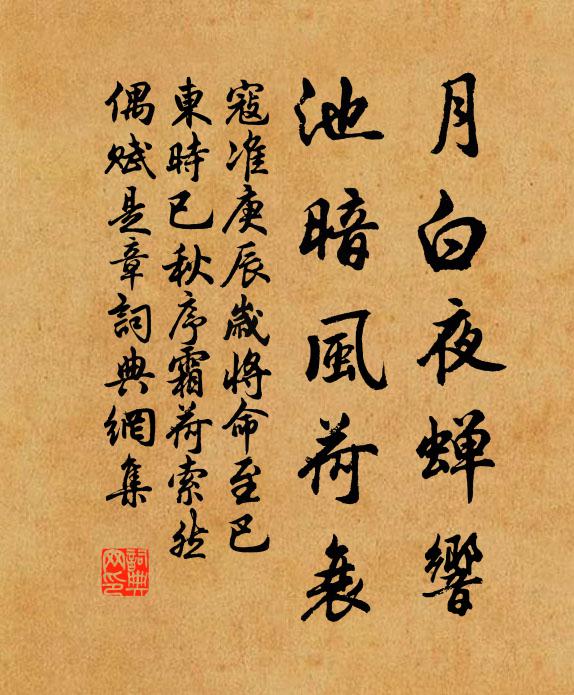 月白夜蝉響
池暗風荷衰
寇准庚辰歲將命至巴
東時已秋序霜荷索然
偶賦是章詞典網集
詞典
网印